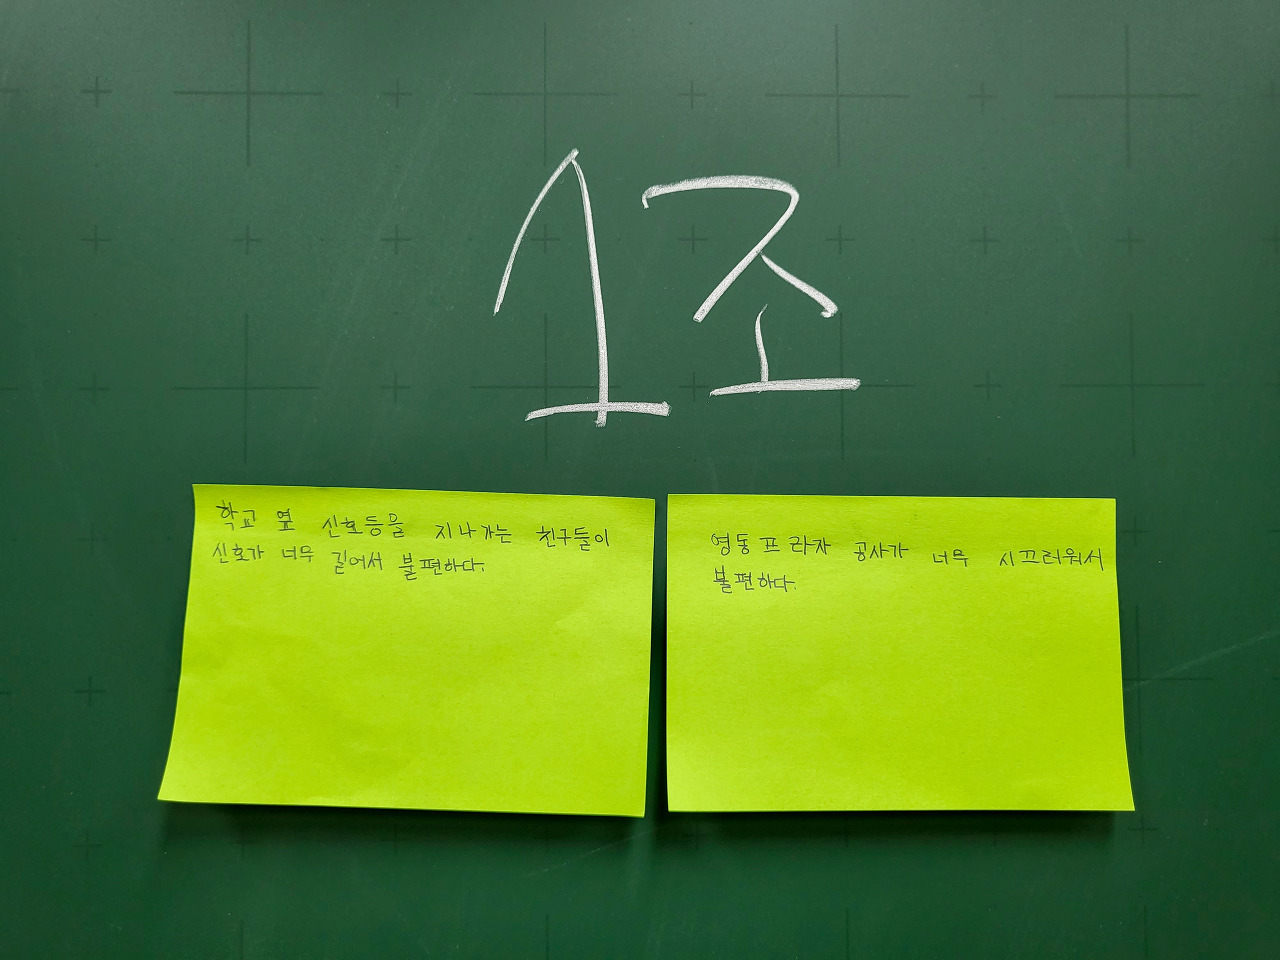 1조
학교 옆 신호등을 지나가는 친구들이
신호가 너무 길어서 불편하다.
영동프라자 공사가 너무 시끄러워서
불편하다.